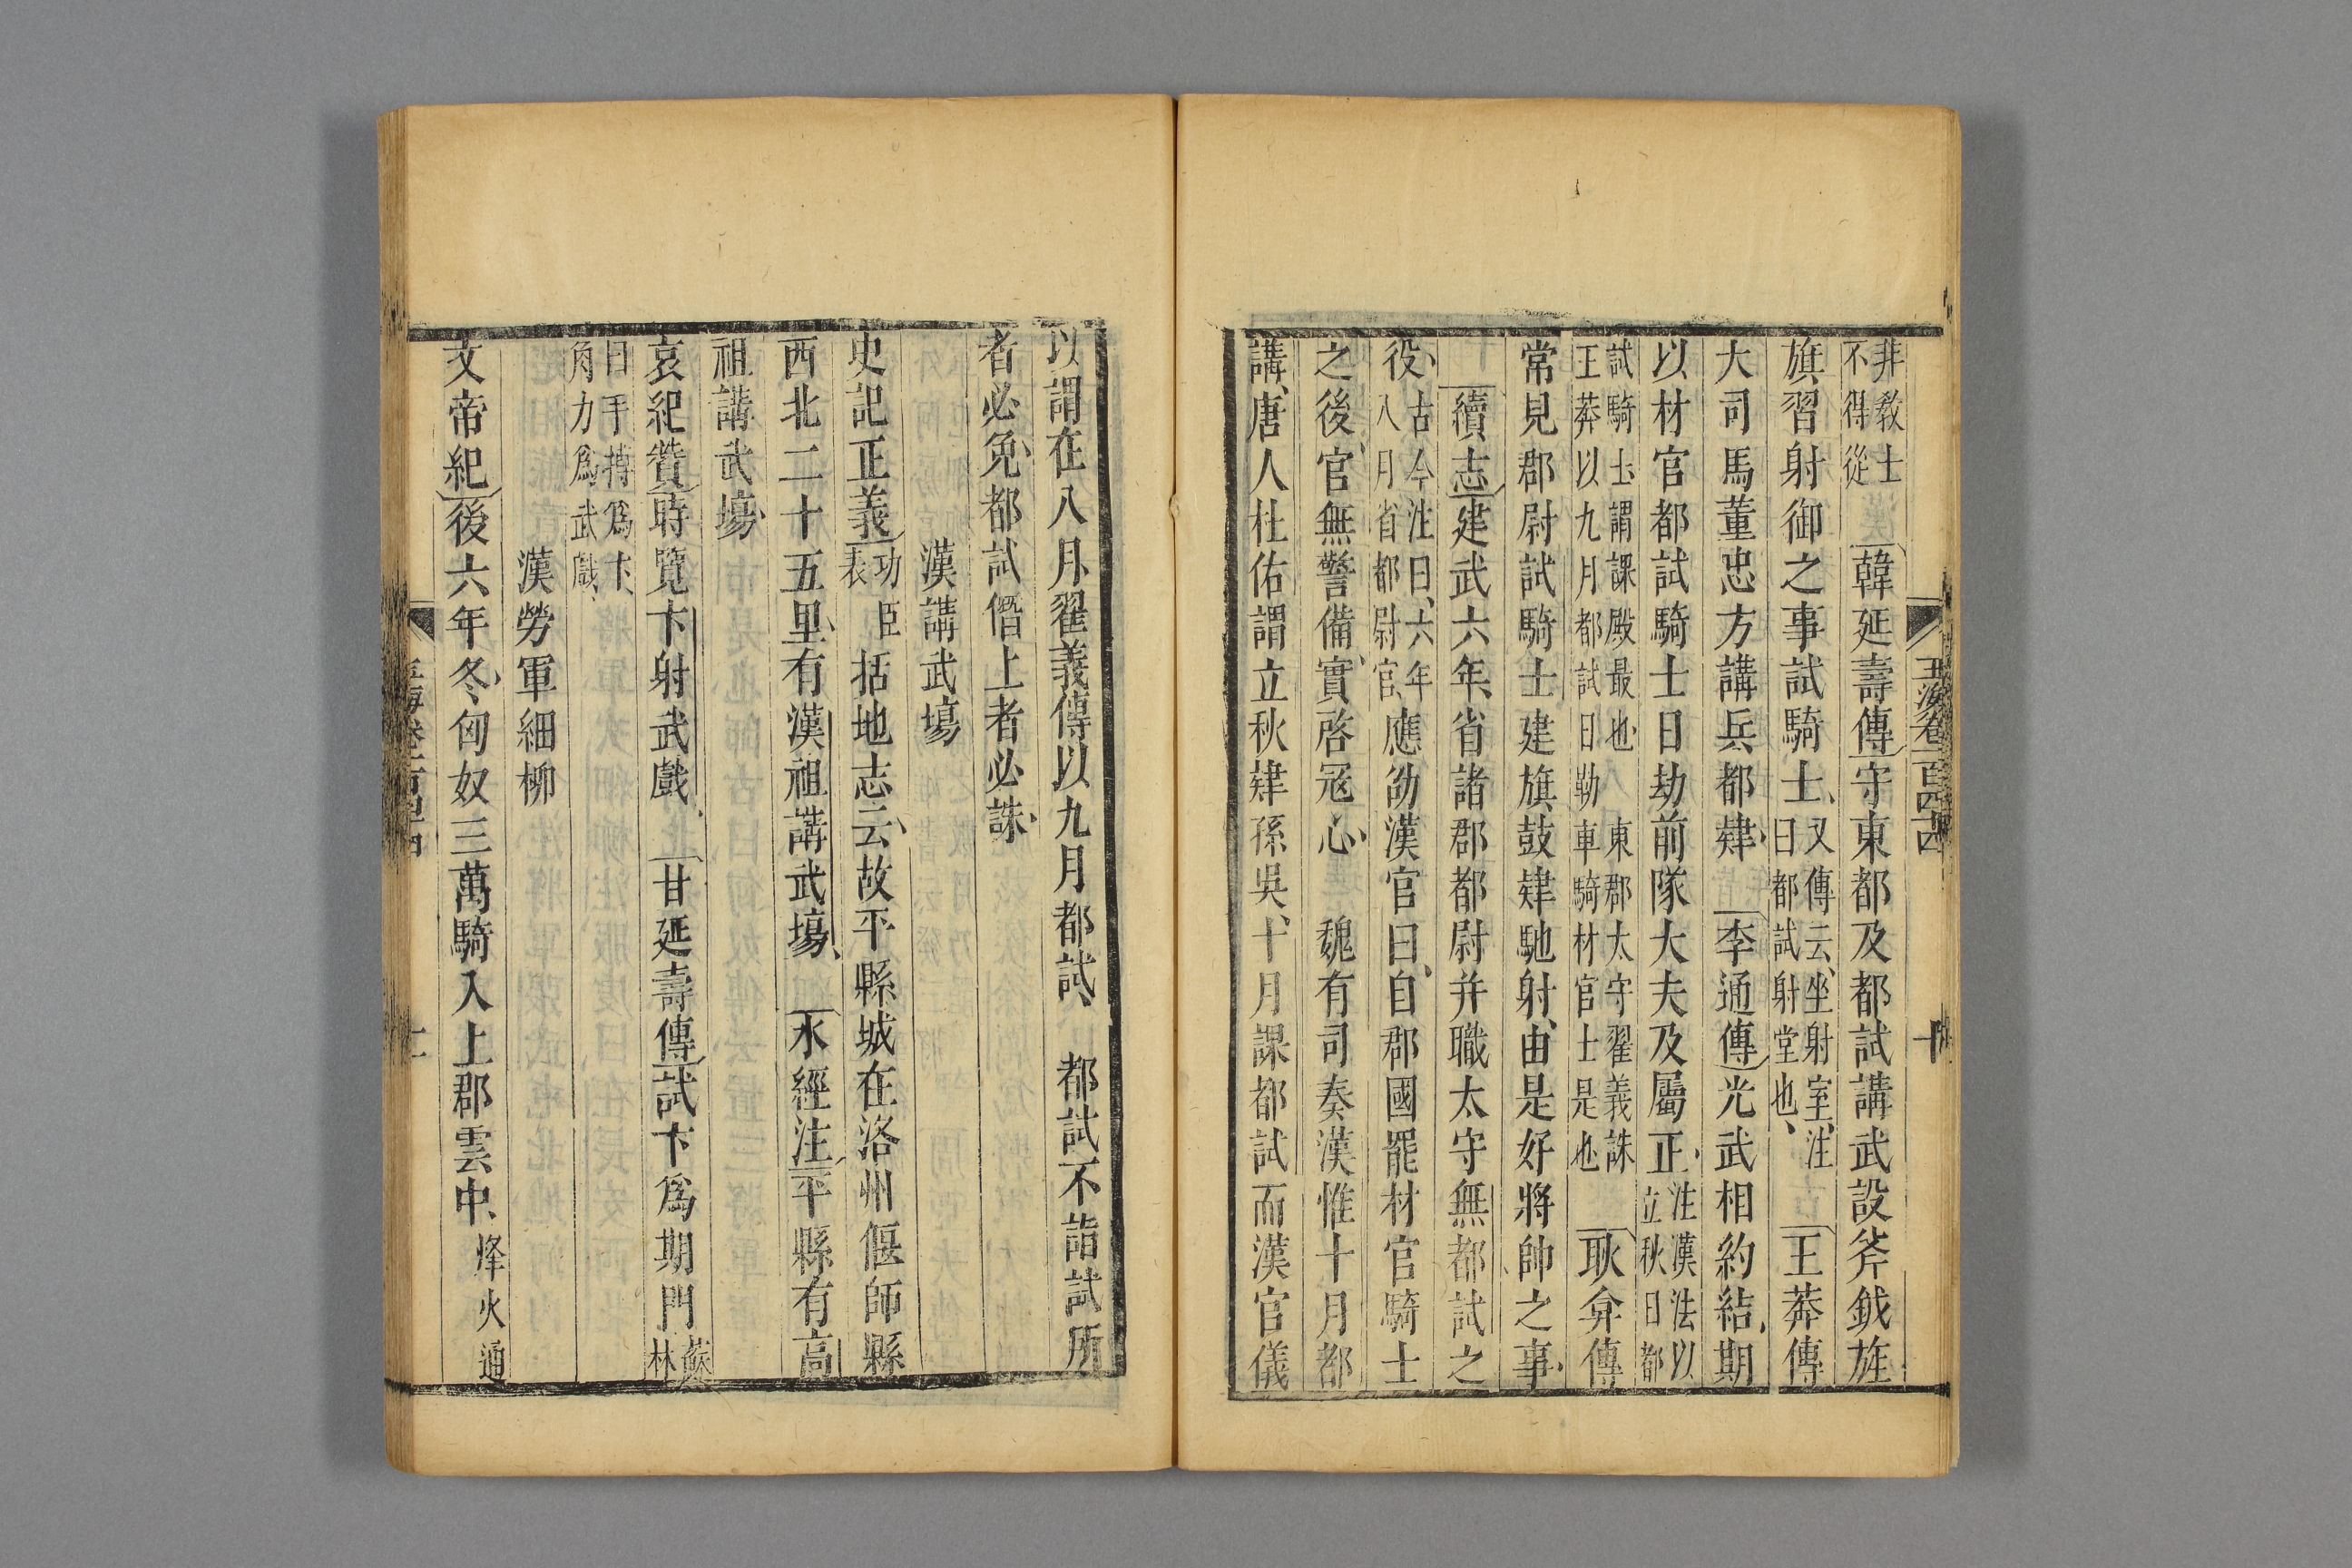 玉海卷一百四十四
十
非教士不得從　韓延壽傳守東都及都試講武設斧鉞旌
旗習射御之事試騎士又傳云坐射室注日都試射堂也　王莽傳
大司馬董忠方講兵都肄　李通傳光武相約結期
以材官都試騎士日劫前隊大夫及屬正注漢法以立秋日都
試騎士謂課殿最也　東郡太守翟義誅王莽以九月都試日勒車騎材官士是也　耿弇傳
常見郡尉試騎士建旗鼓肄馳射由是好將帥之事
續志建武六年省諸郡都尉并職太守無都試之
役古今注曰六年八月省都尉官應劭漢官曰自郡國罷材官騎士
之後官無警備實啓冦心　魏有司奏漢惟十月都
講唐人杜佑謂立秋肄孫吳十月課都試而漢官儀
以謂在八月翟義傳以九月都試　都試不詣試所
者必免都試僭上者必誅
漢講武場
史記正義功臣表　括地志云故平縣城在洛州偃師縣
西北二十五里有漢祖講武場　水經注平縣有高
祖講武場
哀紀贊時覽卞射武戲　甘延壽傳試卞爲期門蘇林
曰手搏爲卞角力爲武戲
漢勞軍細柳
文帝紀後六年冬匈奴三萬騎入上郡雲中烽火通
玉海卷一百四十四